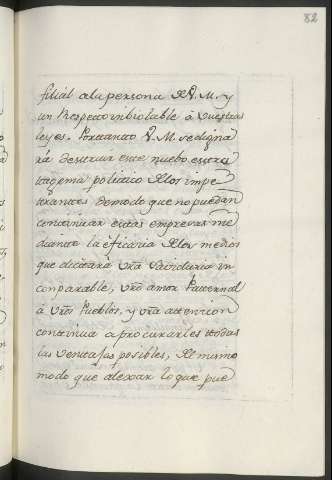 82
filial a la persona de V. M. y
un Respeto inbiolable à Vuestras
leyes. Portanto V. M. se digna
rá destruir este nuebo estra
tagema politico de los impe
trantes de modo que no puedan
continuar dictas empresas me
diante la eficacia de los medios
que dictará vra Sabiduria in
conparable, vro amor Paternal
à vros Pueblos, y vra attencion
continua a procurarles todas
las ventajas posibles, del mismo
modo que alexar lo que pue